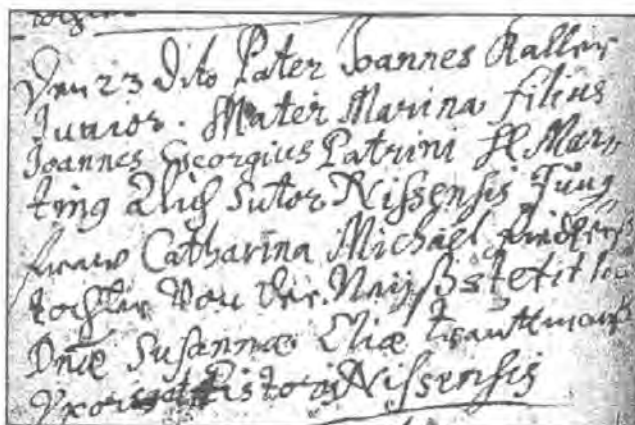 Den 23 dito Pater Joannes Kaller
Junior. Mater Marina filius
Joannes Georgius Patrini H Mar„
ting Sutor Nissensis Jung
fraw Catharina Michael
tochter von der Neyß stetit
Dnæ Susannæ Eliæ Trauttmans
Uxoris Pistoris Nissensis